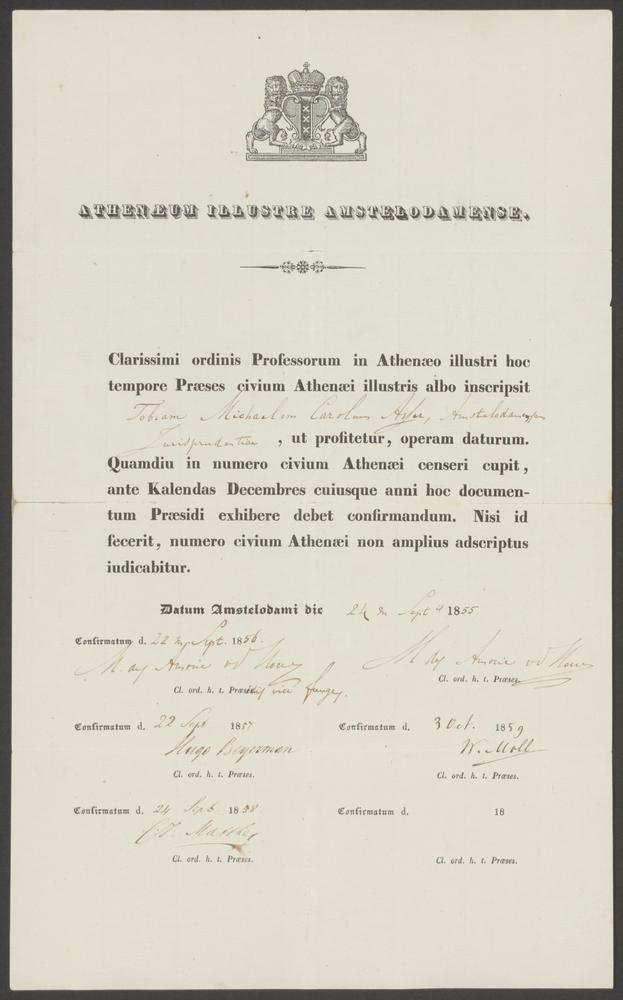 ATHENÆUM ILLUSTRE AMSTELODAMENSE.
Clarissimi ordinis Professorum in Athenæo illustri hoc
tempore Præses civium Athenæi illustris albo inscripsit
Tobiam Michaelem Carolum Asser, Amstelodamensem
Jurisprudentiae , ut profitetur, operam daturum.
Quamdiu in numero civium Athenæi censeri cupit,
ante Kalendas Decembres cuiusque anni hoc documen-
tum Præsidi exhibere debet confirmandum. Nisi id
fecerit, numero civium Athenæi non amplius adscriptus
iudicabitur.
Datum Amstelodami die 24 Sept 1855
Confirmatum d. 22 Sept. 1856.
Cl. ord. h. t. Præses.
Cl. ord. h. t. Præsidis vice
Confirmatum d. 22 Sept 1857
Hugo Beyerman
Cl. ord. h. t. Præses.
Confirmatum d. 3 Oct. 1859
W. Moll
Cl. ord. h. t. Præses.
Confirmatum d. 24 Sept 1858
Cl. ord. h. t. Præses.
Confirmatum d. 18
Cl. ord. h. t. Præses.